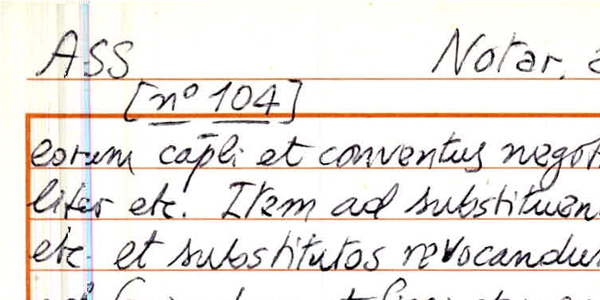 ASS Notar.
[nº 104]
eorum capli et conventus negot
liter etc. Item ad substituen
etc. et substitutos revocandu